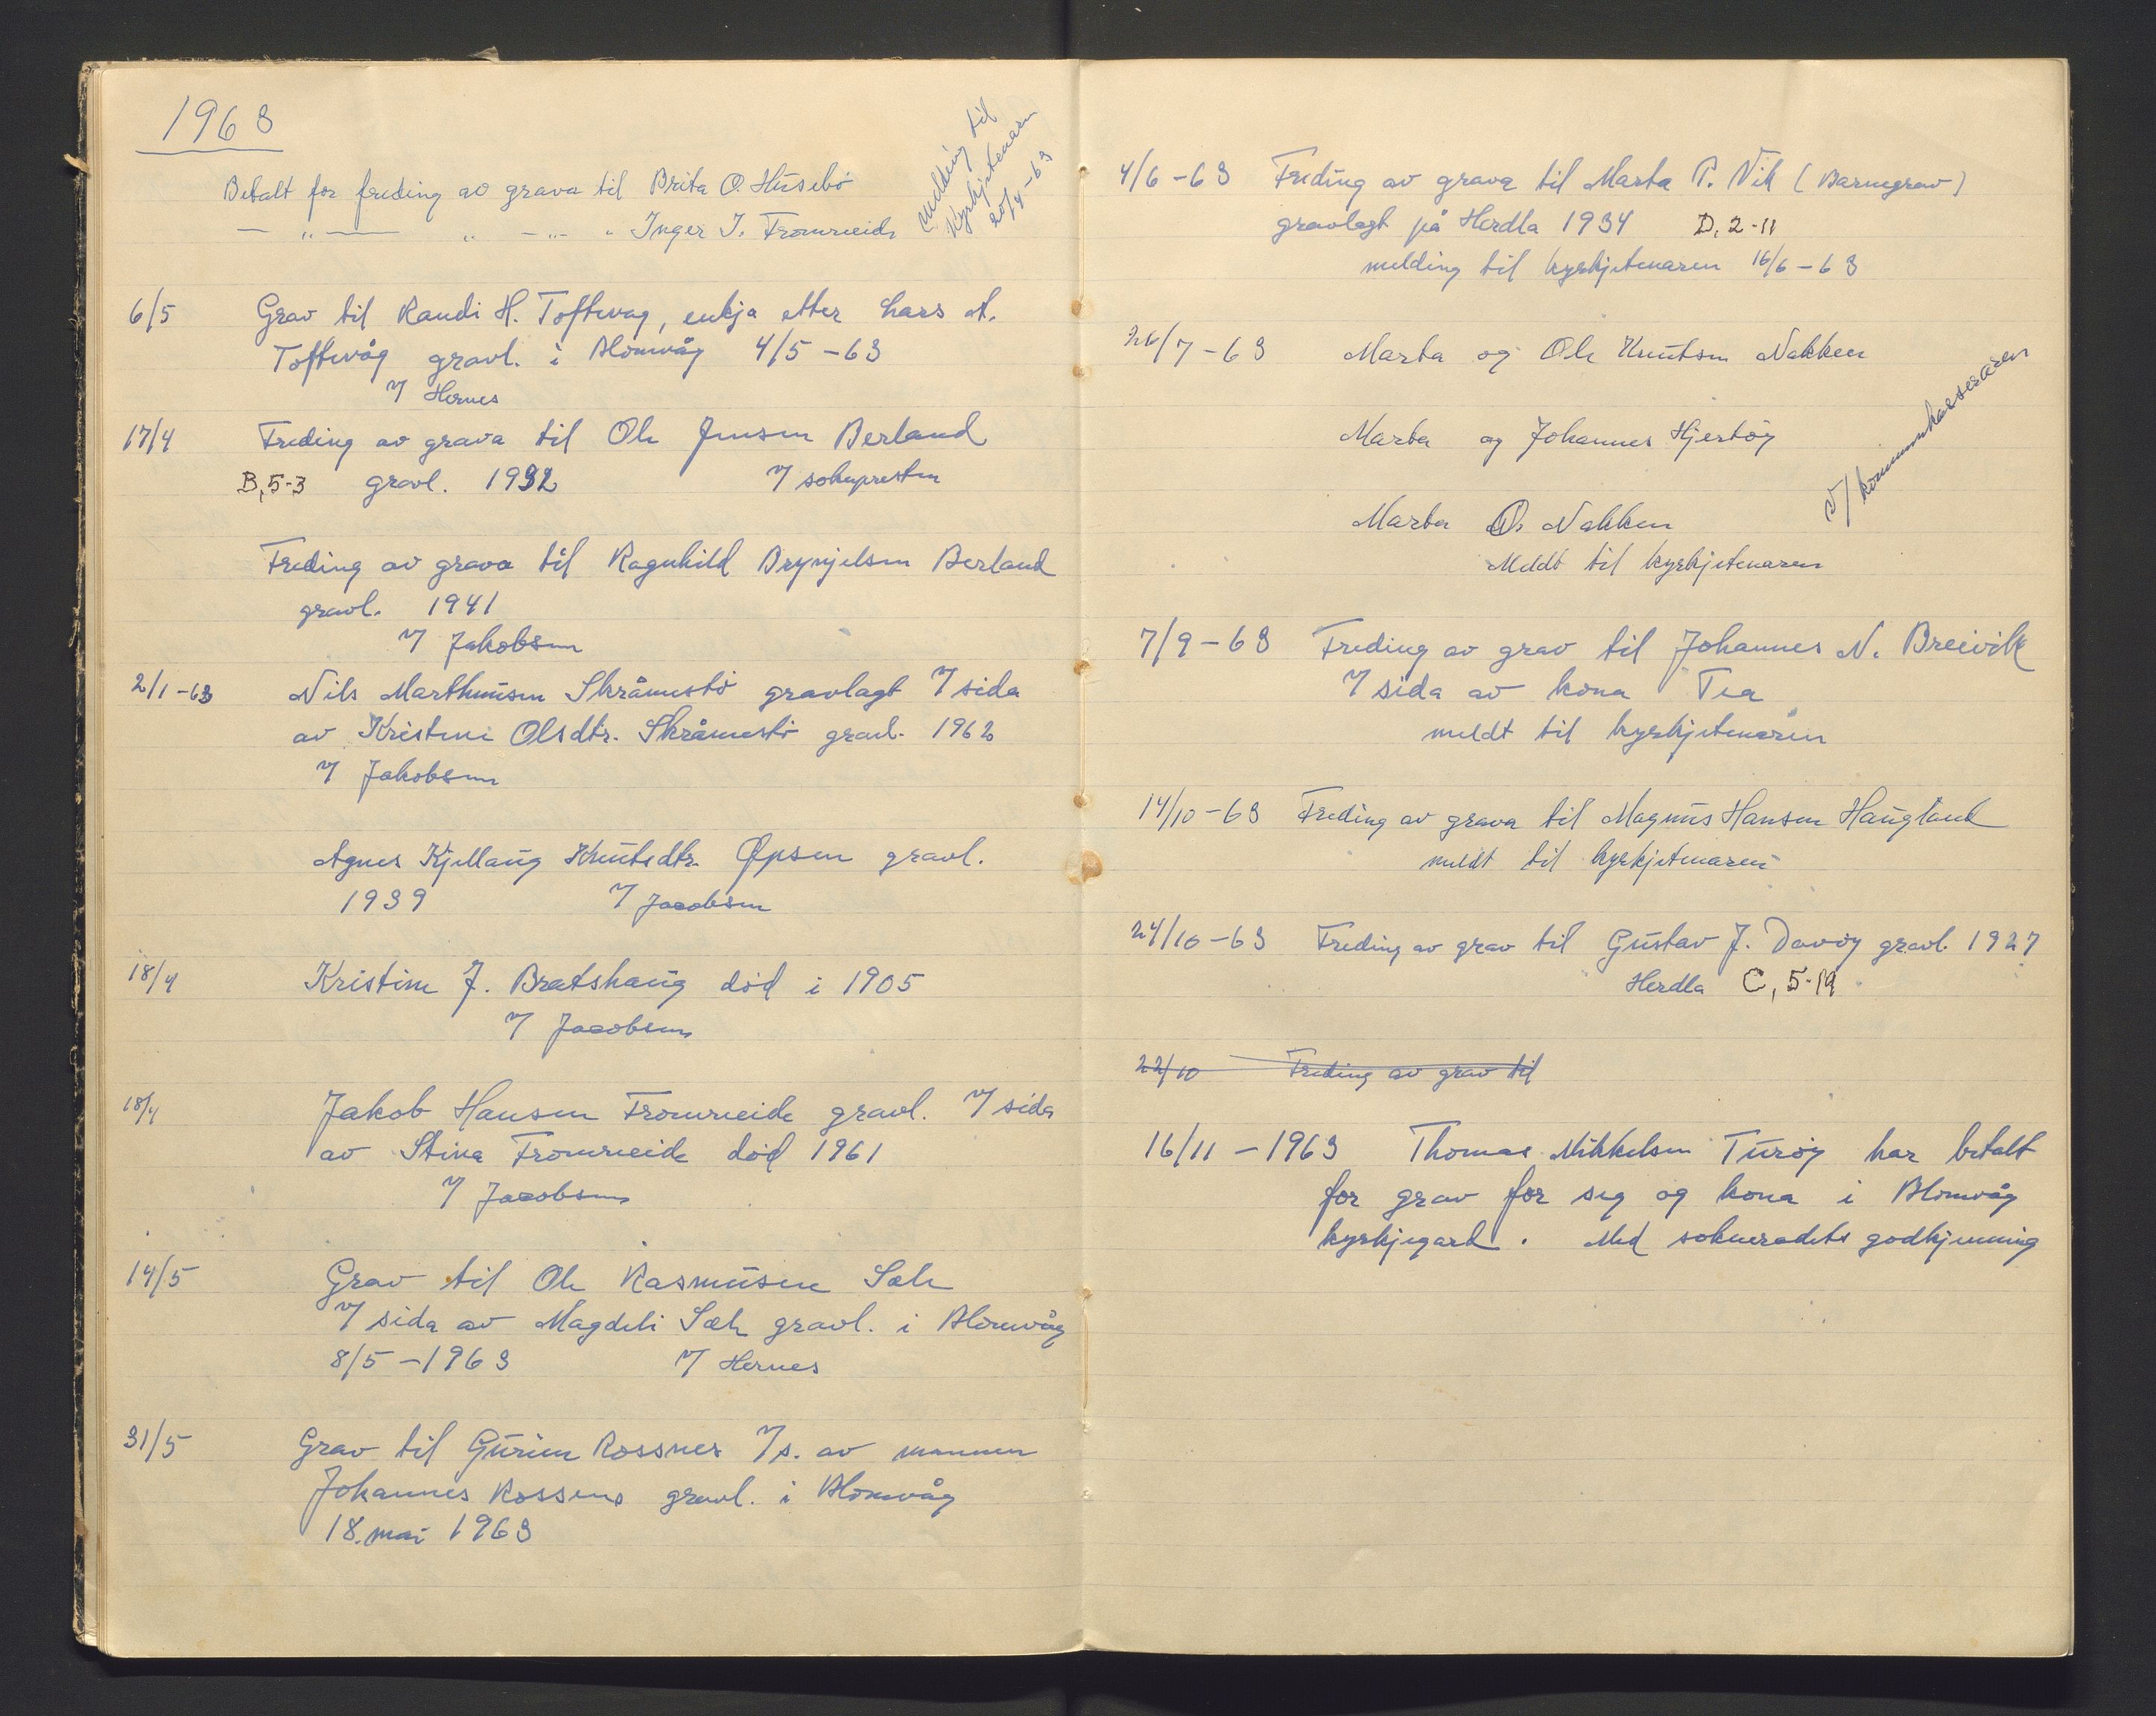 1963
Betalt for freding av grava til Brita O. Husebø
— " — " — " — " Inger J. Fromreide
melding til
kyrkjetenaren
20/4-63
6/5 Grav til Randi H. Toftevag, enkja etter Lars A.
Toftevåg gravl. i Blomvåg 4/5-63
v/ Hernes
17/4 Freding av grava til Ole Jensen Berland
B, 5-3 gravl. 1932 v/ soknepresten
Freding av grava til Ragnhild Brynjelsen Berland
gravl. 1941
v/ Jakobsen
2/1-63 Nils Marthinusen Skråmestø gravlagt v/ sida
av Kristine Olsdtr. Skråmestø gravl. 1962
v/ Jakobsen
Agnes Kjellaug Knutsdtr. Øpsen gravl.
1939 v/ Jacobsen
18/4 Kristine J. Bratshaug død i 1905
v/ Jacobsen
18/4 Jakob Hansen Fromreide gravl. v/ sida
av Stina Fromreide død 1961
v/ Jacobsen
14/5 Grav til Ole Rasmusen Sæle
v/ sida av Magdeli Sæle gravl. i Blomvåg
8/5-1963 v/ Hernes
31/5 Grav til Gurine Rossnes v/ s. av mannen
Johannes Rossnes gravl. i Blomvåg
18. mai 1963
4/6-63 Freding av grava til Marta P. Vik (Barnegrav)
gravlagt på Herdla 1934 D, 2-11
melding til kyrkjetenaren 16/6-63
26/7-63 Marta og Ole Knutsen Nakken
Marta og Johannes Hjertøy
Marta O. Nakken
Meldt til kyrkjetenaren
v/ kommunekasseraren
7/9-63 Freding av grav til Johannes N. Breivik
v/ sida av kona Tea
meldt til kyrkjetenaren
14/10-63 Freding av grava til Magnus Hansen Haugland
meldt til kyrkjetenaren
24/10-63 Freding av grav til Gustav J. Davøy gravl. 1927
Herdla C, 5-19
22/10 Freding av grav til
16/11-1963 Thomas Mikkelsen Turøy har betalt
for grav for seg og kona i Blomvåg
kyrkjegard. Med sokneradets godkjenning